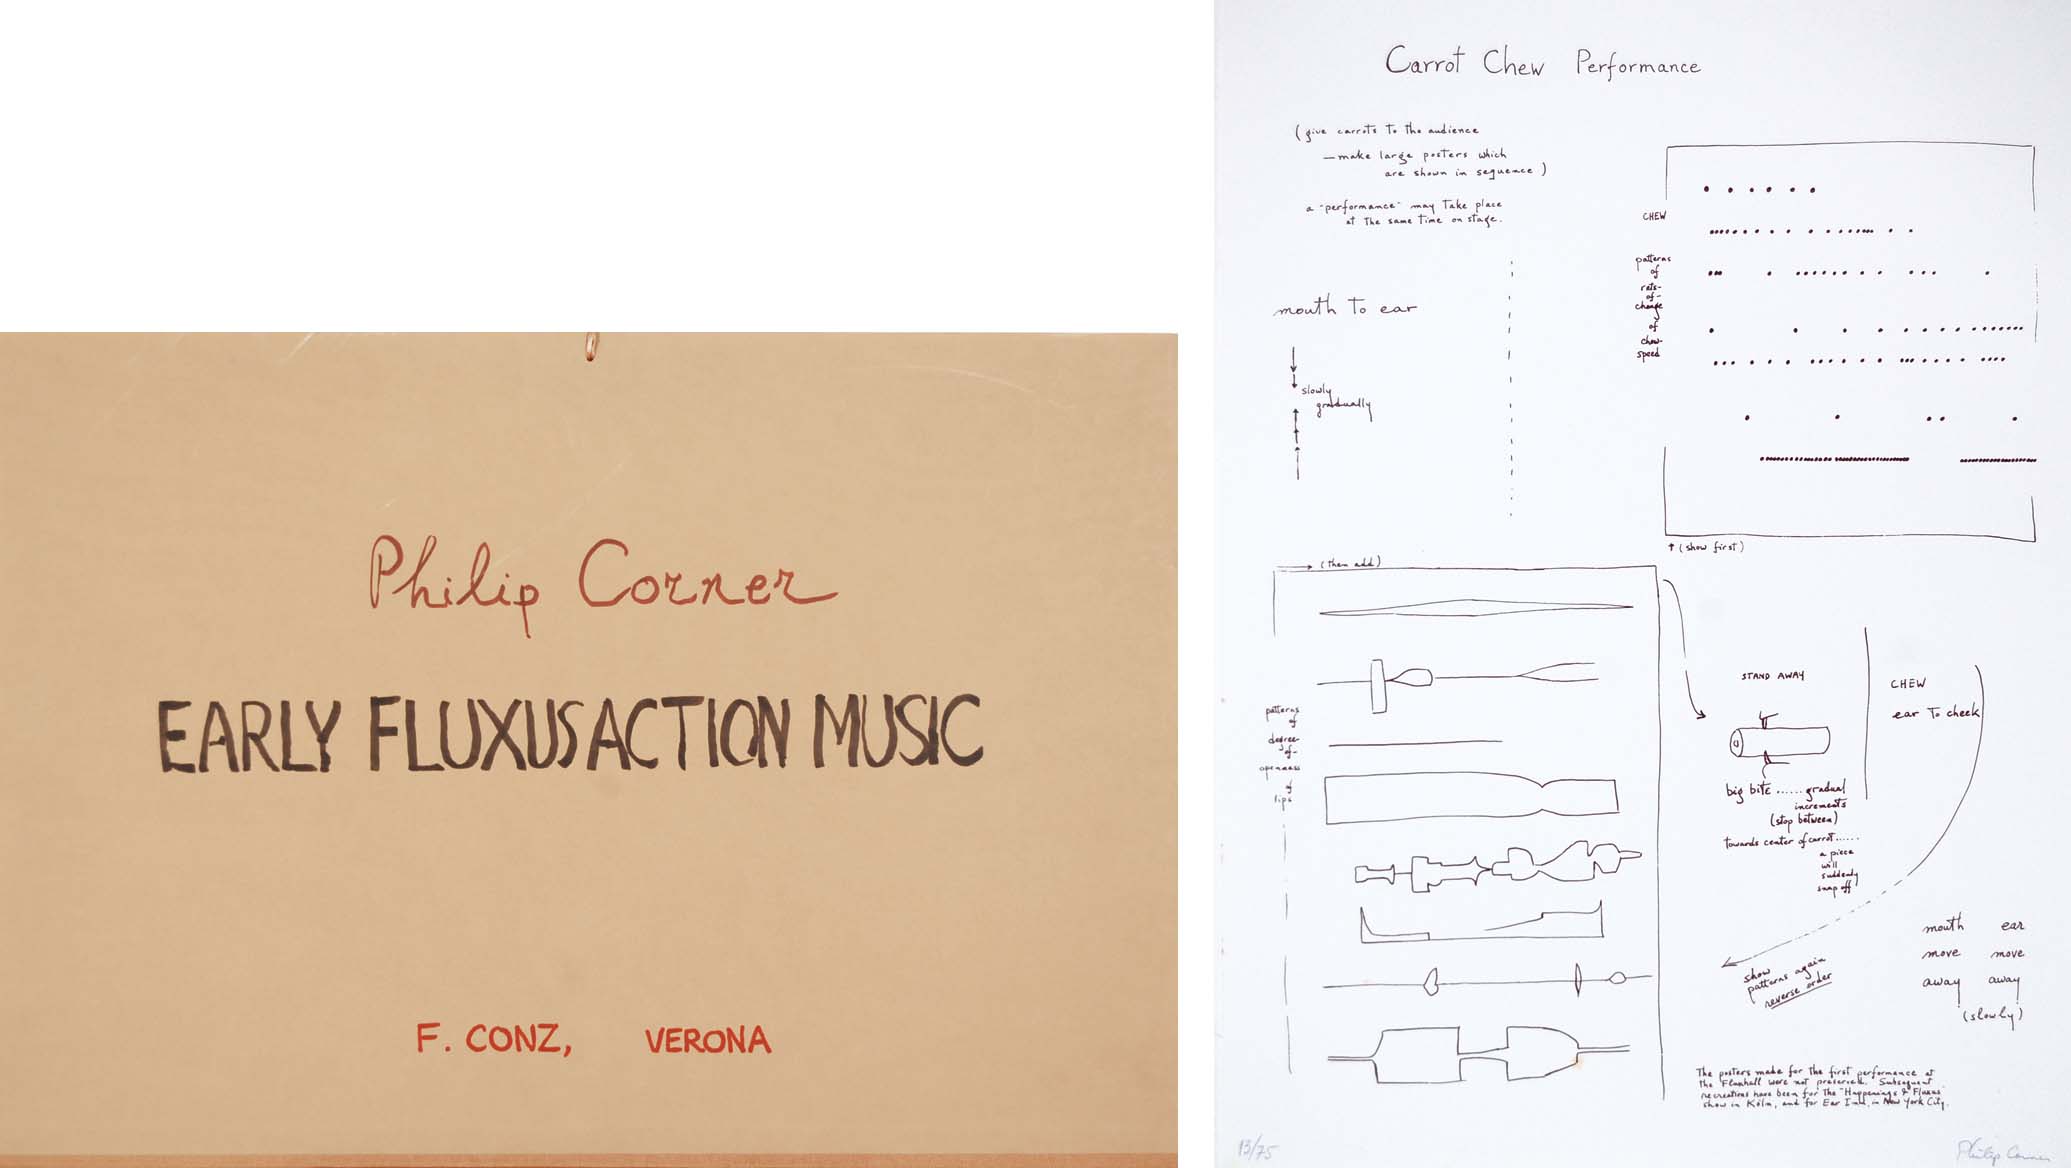 Philip Corner
EARLY FLUXUS ACTION MUSIC
F. CONZ, VERONA
Carrot Chew Performance
(give carrots to the audience
—make large posters which
are shown in sequence)
a "performance" may take place
at the same time on stage.
mouth to ear
slowly
gradually
CHEW
patterns
of
rate-
of-
change
of
chew-
speed
(show first)
(then add)
patterns
of
degree-
of-
openness
of
lips
STAND AWAY
big bite ...... gradual
increments
(stop between)
towards center of carrot......
a piece
will
suddenly
snap off
CHEW
ear to cheek
show
patterns again
reverse order
mouth ear
move move
away away
(slowly)
The posters made for the first performance at
the Fluxhall were not preserved. Subsequent
recreations have been for the "Happenings & Fluxus"
show in Köln, and for Ear Inn, in New York City.
13/75
Philip Corner